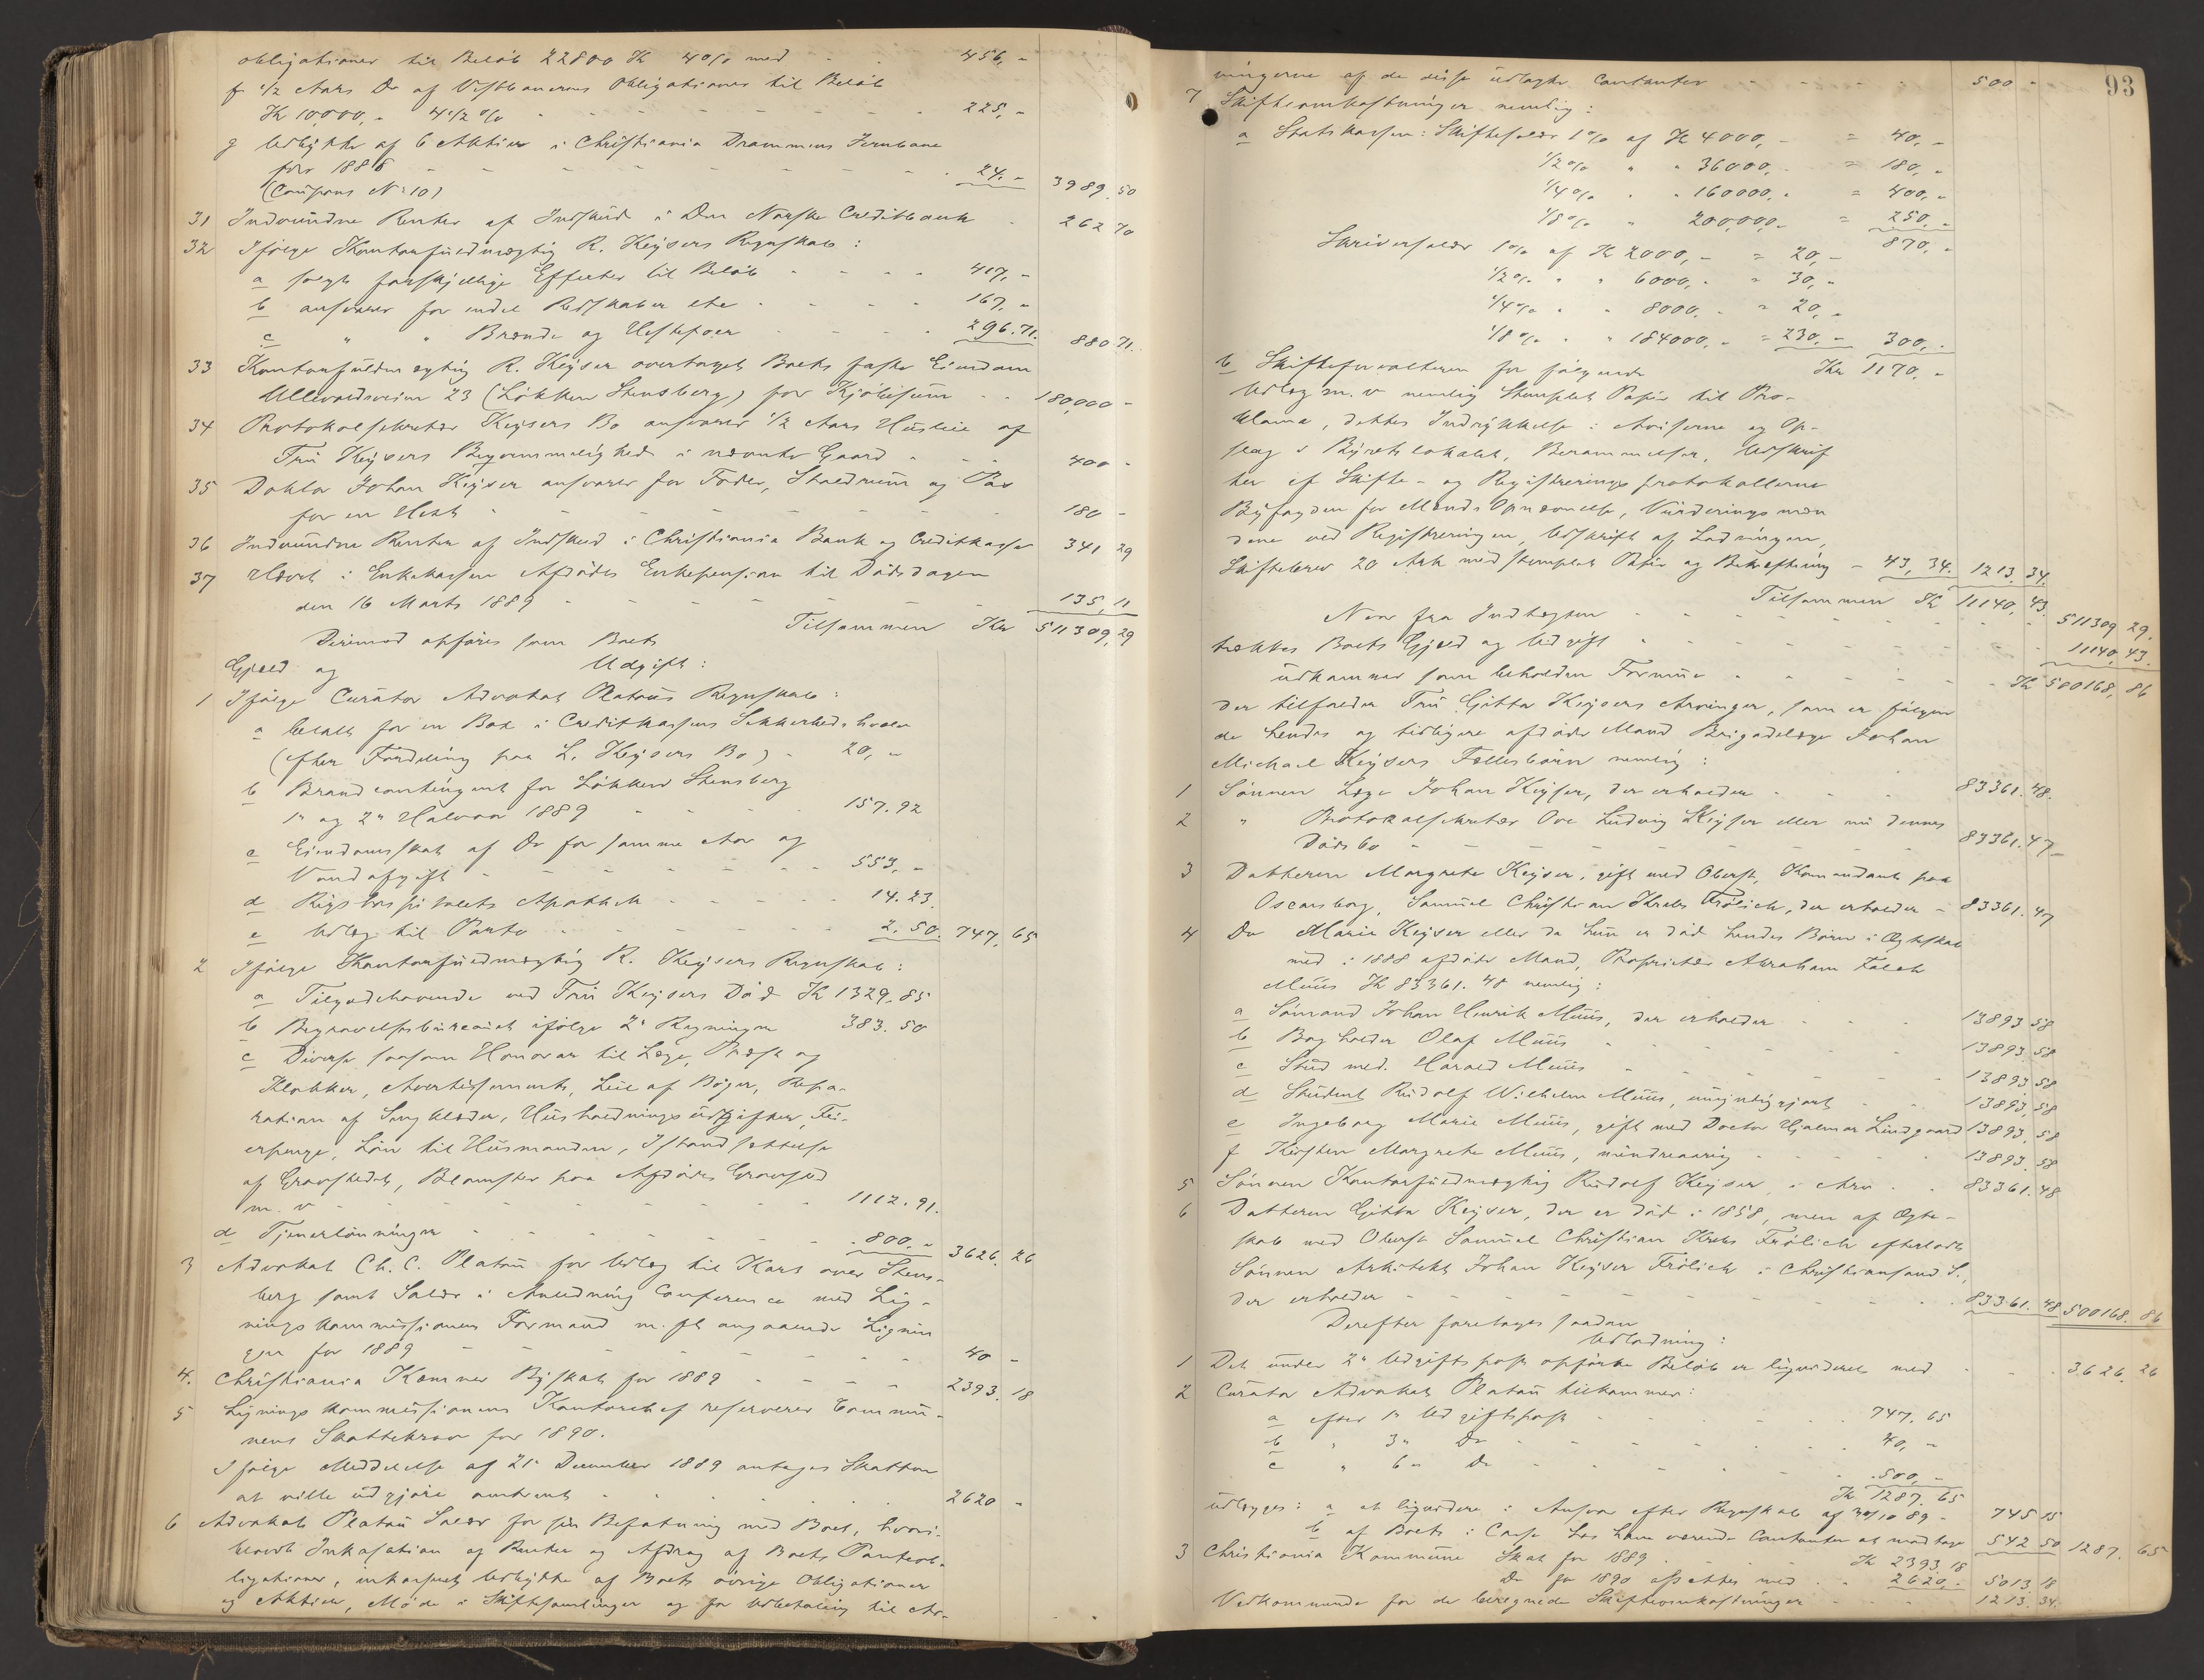 obligationer til Beløb 22800 Kr 4 % med - - 456, -
f 1/2 Aars Do af Vestbanernes Obligationer til Beløb
Kr 10,000, - 4 1/2 % - - - - - 225, -
g Udbytte af 6 Aktier i Christiania Drammens Jernbane
for 1888 - - - - - - - 24, - 3989. 50
(Coupons No 10)
31 Indvundne Renter af Indskud i Den Norske Creditbank - 262 70
32 Ifølge Kontorfuldmægtig R. Keysers Regnskab:
a solgt forskjellige Effecter til Beløb - - - - 417, -
b ansvarer for endel Redskaber etc - - - - 167, -
c " " Brænde og Hestefoer - - - - 296.71. 880 71.
33 Kontorfuldmægtig R. Keyser overtaget Boets faste Eiendom
Ullevoldsveien 23 (Løkken Stensberg) for Kjøbesum - - 180,000 -
34 Protokolsekretær Keysers Bo ansvarer 1/2 Aars Husleie af
Fru Keysers Beqvemmelighed i nævnte Gaard - - - 400 -
35 Doktor Johan Keyser ansvarer for Foder, Staldrum og Pas
for en Hest - - - - - - - - - 180 -
36 Indvundne Renter af Indskud i Christiania Bank og Creditkasse 341 29
37 Hævet i Enkekassen Afdødes Enkepension til Dødsdagen
den 16 Marts 1889 - - - - - - - 135, 11
Tilsammen Kr 511309, 29
Derimod opføres som Boets
Gjæld og Udgift:
1 Ifølge Curator Advokat Platous Regnskab:
a betalt for en Box i Creditkassens Sikkerhedshvælv
(efter Fordeling paa L. Keysers Bo) - 20, -
b Brandcontingent for Løkken Stensberg
1ste og 2det Halvaar 1889 - - - - 157.92
c Eiendomsskat af Do for samme Aar og
Vandafgift - - - - - - - 553, -
d Rigshospitalets Apothek - - - - - 14.23.
e Udlæg til Porto - - - - - - 2.50. 747, 65
2 Ifølge Kontorfuldmægtig R. Keysers Regnskab:
a Tilgodehavende ved Fru Keysers Død Kr 1329.85
b Begravelsesbureauet ifølge 2 Regninger 383.50
c Diverse saasom Honorar til Læge, Præst og
Klokker, Avertissements, Leie af Bøger, Repa-
ration af Sengklæder, Husholdningsudgifter, Fei-
erpenge, Løn til Husmanden, Istandsættelse
af Gravstedet, Blomster paa Afdødes Gravsted
m. v - - - - - - - - - 1112.91.
d Tjenerlønninger - - - - - - - 800. - 3626. 26
3 Advokat Ch. C. Platou for Udlæg til Kart over Stens-
berg samt Salær i Anledning Conference med Lig-
ningskommissionens Formand m. fl angaaende Lignin
gen for 1889 - - - - - - - - 40 -
4. Christiania Kæmner Byskat for 1889 - - - - 2393. 18
5 Ligningskommissionens Kontorchef reserverer Commu-
nens Skattekrav for 1890.
Ifølge Meddelelse af 21 December 1889 antages Skatten
at ville udgjøre omtrent - - - - - - 2620 -
6 Advokat Platou Salær for sin Befatning med Boet, hvori-
blandt Inkasation af Renter og Afdrag af Boets Panteob-
ligationer, inkasseret Udbytte af Boets øvrige Obligationer
og Aktier, Møde i Skiftesamlinger og for Udbetaling til Ar-
93
vingerne af de disse udlagte Contanter - - - - 500 -
7 Skifteomkostninger nemlig:
a Statskassen: Skiftesalær 1 % af Kr 4000, - = 40, -
1/2 % " " 36000, - = 180, -
1/4 % " " 160000, - = 400, -
1/8 % " 200,000, - = 250, -
870, -
Skriversalær 1 % af Kr 2000, - = 20, -
1/2 % " " 6000, - = 30, -
1/4 % " " 8000, - = 20, -
1/8 % " " 184000, - = 230, - 300, -
b Skifteforvalteren for følgende Kr 1170, -
Udlæg m. v nemlig Stemplet Papir til Pro-
klama, dettes Indrykkelse i Aviserne og Op-
slag i Byretslokalet, Berammelser, Udskrif
ter af Skifte- og Registreringsprotokollerne
Byfogden for Mænds Opnævnelse, Vurderingsmæn
dene ved Registreringen, Udskrift af Ladningen,
Skiftebrev 20 Ark med stemplet Papir og Bekræftning - 43, 34. 1213. 34.
Tilsammen Kr 11140, 43.
Naar fra Indtægten - - - - - - - 511309 29.
trækkes Boets Gjæld og Udgift - - - - - - 11140, 43.
udkommer som beholden Formue - - - - - Kr 500168, 86
der tilfalder Fru Gitta Keysers Arvinger, som er følgen
de hendes og tidligere afdøde Mand Brigadelæge Johan
Michael Keysers Fællesbørn nemlig:
1 Sønnen Læge Johan Keyser, der erholder - - - 83361. 48.
2 " Protokolsekretær Ove Ludvig Keyser eller nu dennes
Dødsbo - - - - - - - - - 83361. 47 -
3 Datteren Margrete Keyser, gift med Oberst, Kommandant paa
Oscarsborg, Samuel Christian Krebs Frölich, der erholder - 83361. 47
4 Do Marie Keyser eller da hun er død hendes Børn i Ægteskab
med i 1888 afdøde Mand, Proprietær Abraham Falch
Muus Kr 83361.48 nemlig:
a Sømand Johan Henrik Muus, der erholder - - - 13893 58
b Bogholder Olaf Muus - - - - - - 13893. 58
c Stud med. Harald Muus - - - - - - 13893 58
d Student Rudolf Wilhelm Muus, umyndiggjort - - 13893, 58
e Ingeborg Marie Muus, gift med Doctor Hjalmar Lindgaard 13893, 58
f Kirsten Margrete Muus, mindreaarig - - - - 13893. 58
5 Sønnen Kontorfuldmægtig Rudolf Keyser, i Arv - - 83361. 48
6 Datteren Gitta Keyser, der er død i 1858, men af Ægte-
skab med Oberst Samuel Christian Krebs Frölich efterlod
Sønnen Arkitekt Johan Keyser Frölich i Christiansand S.,
der erholder - - - - - - - - 83361. 48 500168. 86
Derefter foretages saadan
Udlodning:
1 Det under 2den Udgiftspost opførte Beløb er liqvideret med - - - 3626. 26
2 Curator Advokat Platou tilkommer:
a efter 1ste Udgiftspost - - - - - 747. 65
b " 3die Do - - - - - - 40, -
c " 6te Do - - - - - - 500, -
Kr 1287. 65
udlægges: a at liqvidere i Ansvar efter Regnskab af 30/10 89 - 745 15
b af Boets i Casse hos ham værende Contanter at modtage 542 50 1287. 65
3 Christiania Kommune Skat for 1889 - - - Kr 2393.18
Do for 1890 afsættes med - - 2620. - 5013. 18
Vedkommende for de beregnede Skifteomkostninger - - - 1213. 34.